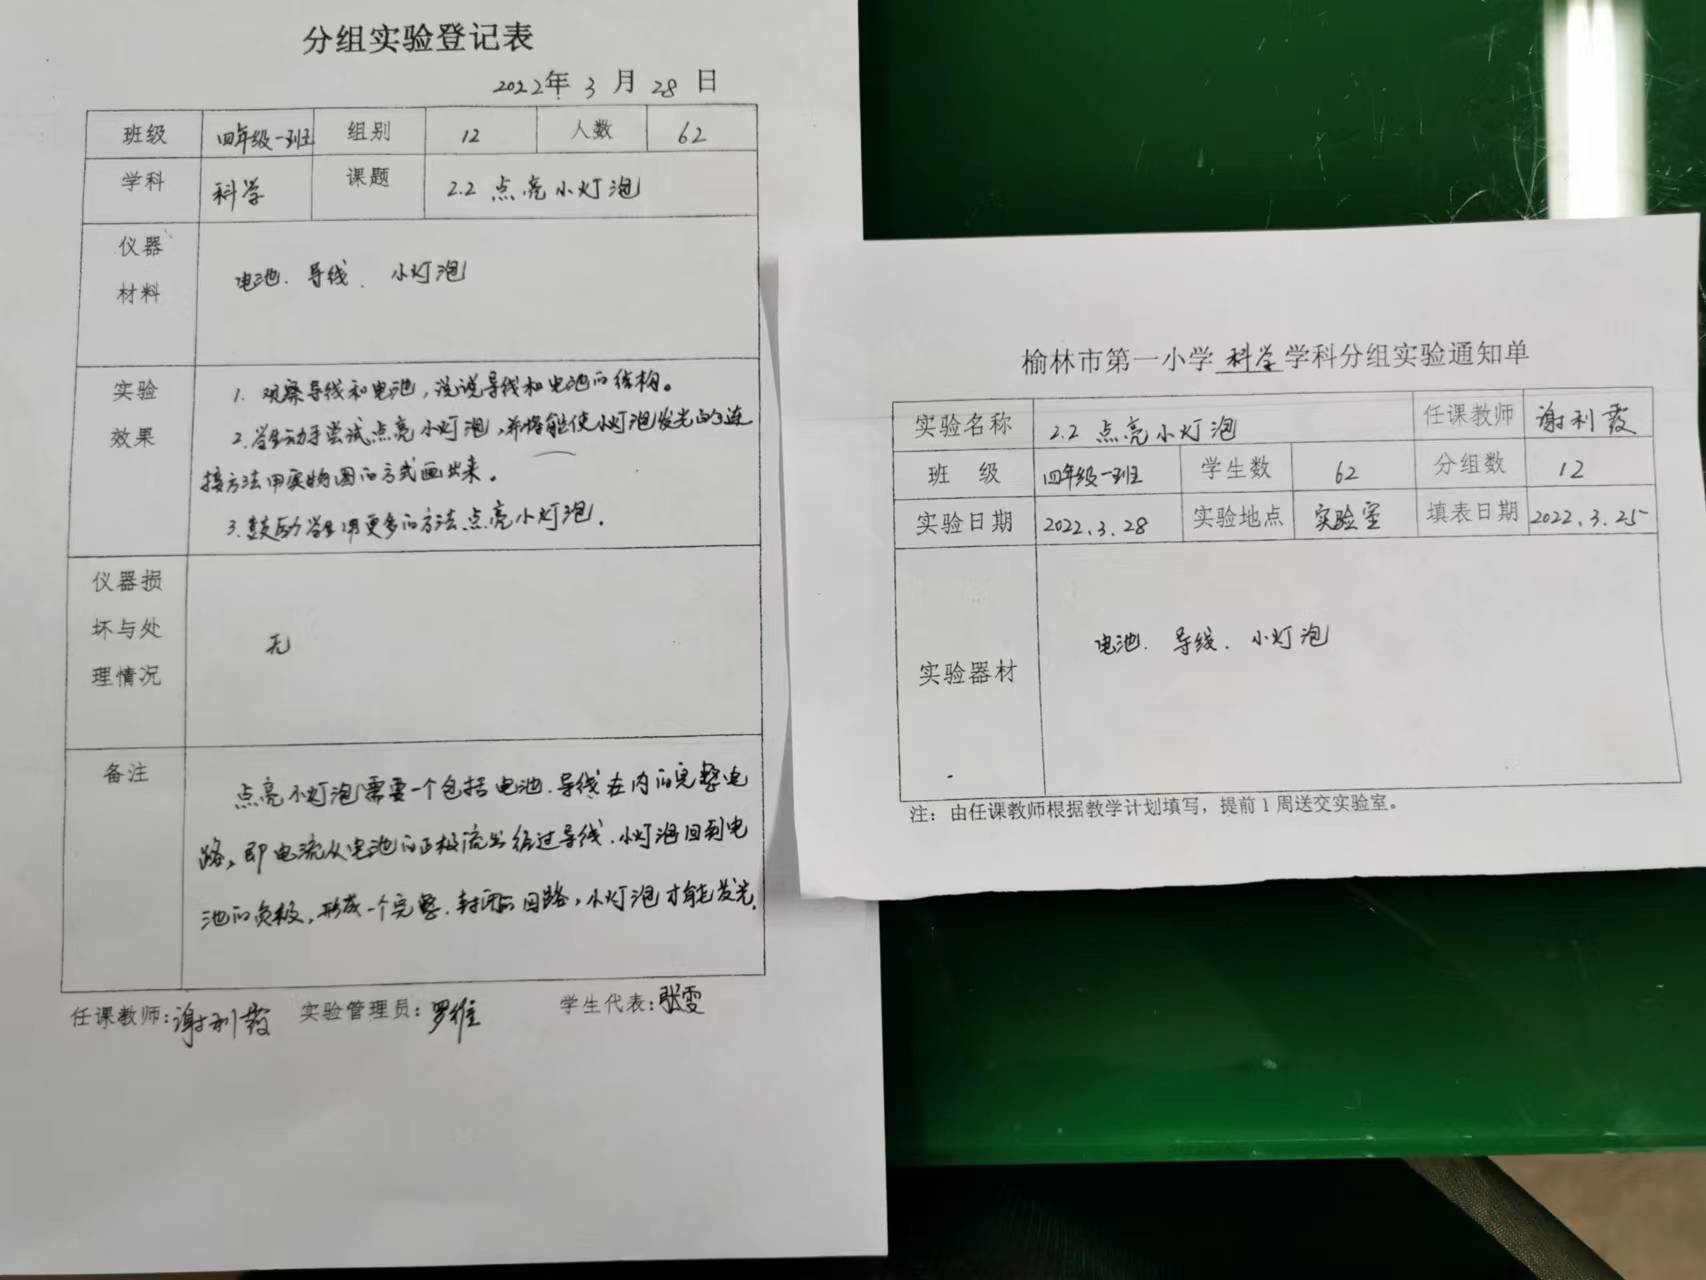 分组实验登记表
2022年 3 月 28 日
班级 四年级一班 组别 12 人数 62
学科 科学 课题 2.2 点亮小灯泡
仪器
材料
电池、导线、小灯泡
实验
效果
1. 观察导线和电池,说说导线和电池的结构。
2.学生动手尝试点亮小灯泡,并将能使小灯泡发光的连
接方法用实物图的方式画出来。
3.鼓励学生用更多的方法点亮小灯泡.
仪器损
坏与处
理情况
无
备注
点亮小灯泡需要一个包括电池、导线在内的完整电
路,即电流从电池的正极流出经过导线、小灯泡回到电
池的负极,形成一个完整、封闭的回路,小灯泡才能发光.
任课教师:谢利霞 实验管理员:罗维 学生代表:张雯
榆林市第一小学 科学 学科分组实验通知单
实验名称 2.2 点亮小灯泡 任课教师 谢利霞
班 级 四年级一班 学生数 62 分组数 12
实验日期 2022.3.28 实验地点 实验室 填表日期 2022.3.25
实验器材 电池、导线、小灯泡
注:由任课教师根据教学计划填写,提前1周送交实验室。